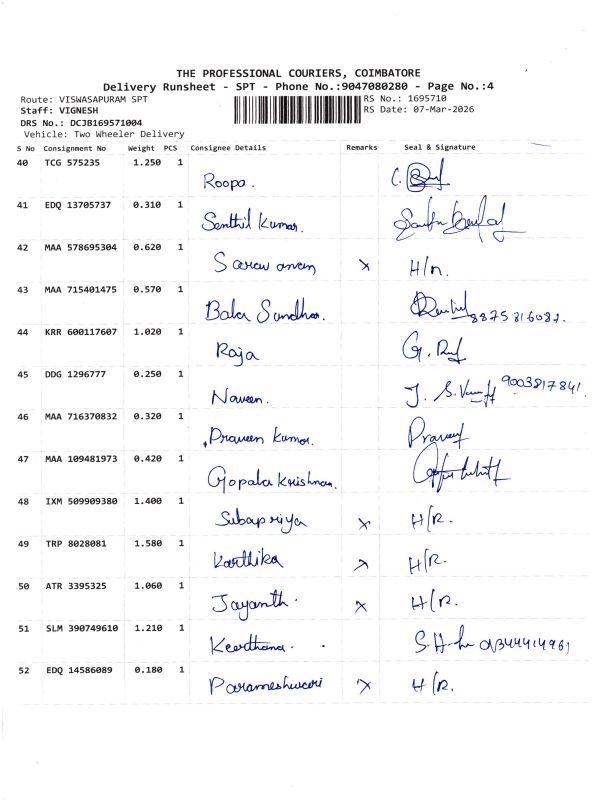 THE PROFESSIONAL COURIERS, COIMBATORE
Delivery Runsheet - SPT - Phone No.:9047080280 - Page No.:4
Route: VISWASAPURAM SPT RS No.: 1695710
Staff: VIGNESH RS Date: 07-Mar-2026
DRS No.: DCJB169571004
Vehicle: Two Wheeler Delivery
S No Consignment No Weight PCS Consignee Details Remarks Seal & Signature
40 TCG 575235 1.250 1
Roopa. C.
41 EDQ 13705737 0.310 1
Senthil Kumar.
42 MAA 578695304 0.620 1
Saravanan x H/R.
43 MAA 715401475 0.570 1
Bala Sundhar. 8875816087.
44 KRR 600117607 1.020 1
Raja G.
45 DDG 1296777 0.250 1
Naveen. J. S. 9003817841.
46 MAA 716370832 0.320 1
Praveen Kumar. Praveen
47 MAA 109481973 0.420 1
Gopala Krishnan.
48 IXM 509909380 1.400 1
Subapriya x H/R.
49 TRP 8028081 1.580 1
Karthika x H/R.
50 ATR 3395325 1.060 1
Jayanth. x H/R.
51 SLM 390749610 1.210 1
Keerthana. S.H.
52 EDQ 14586089 0.180 1
Parameshwari x H/R.